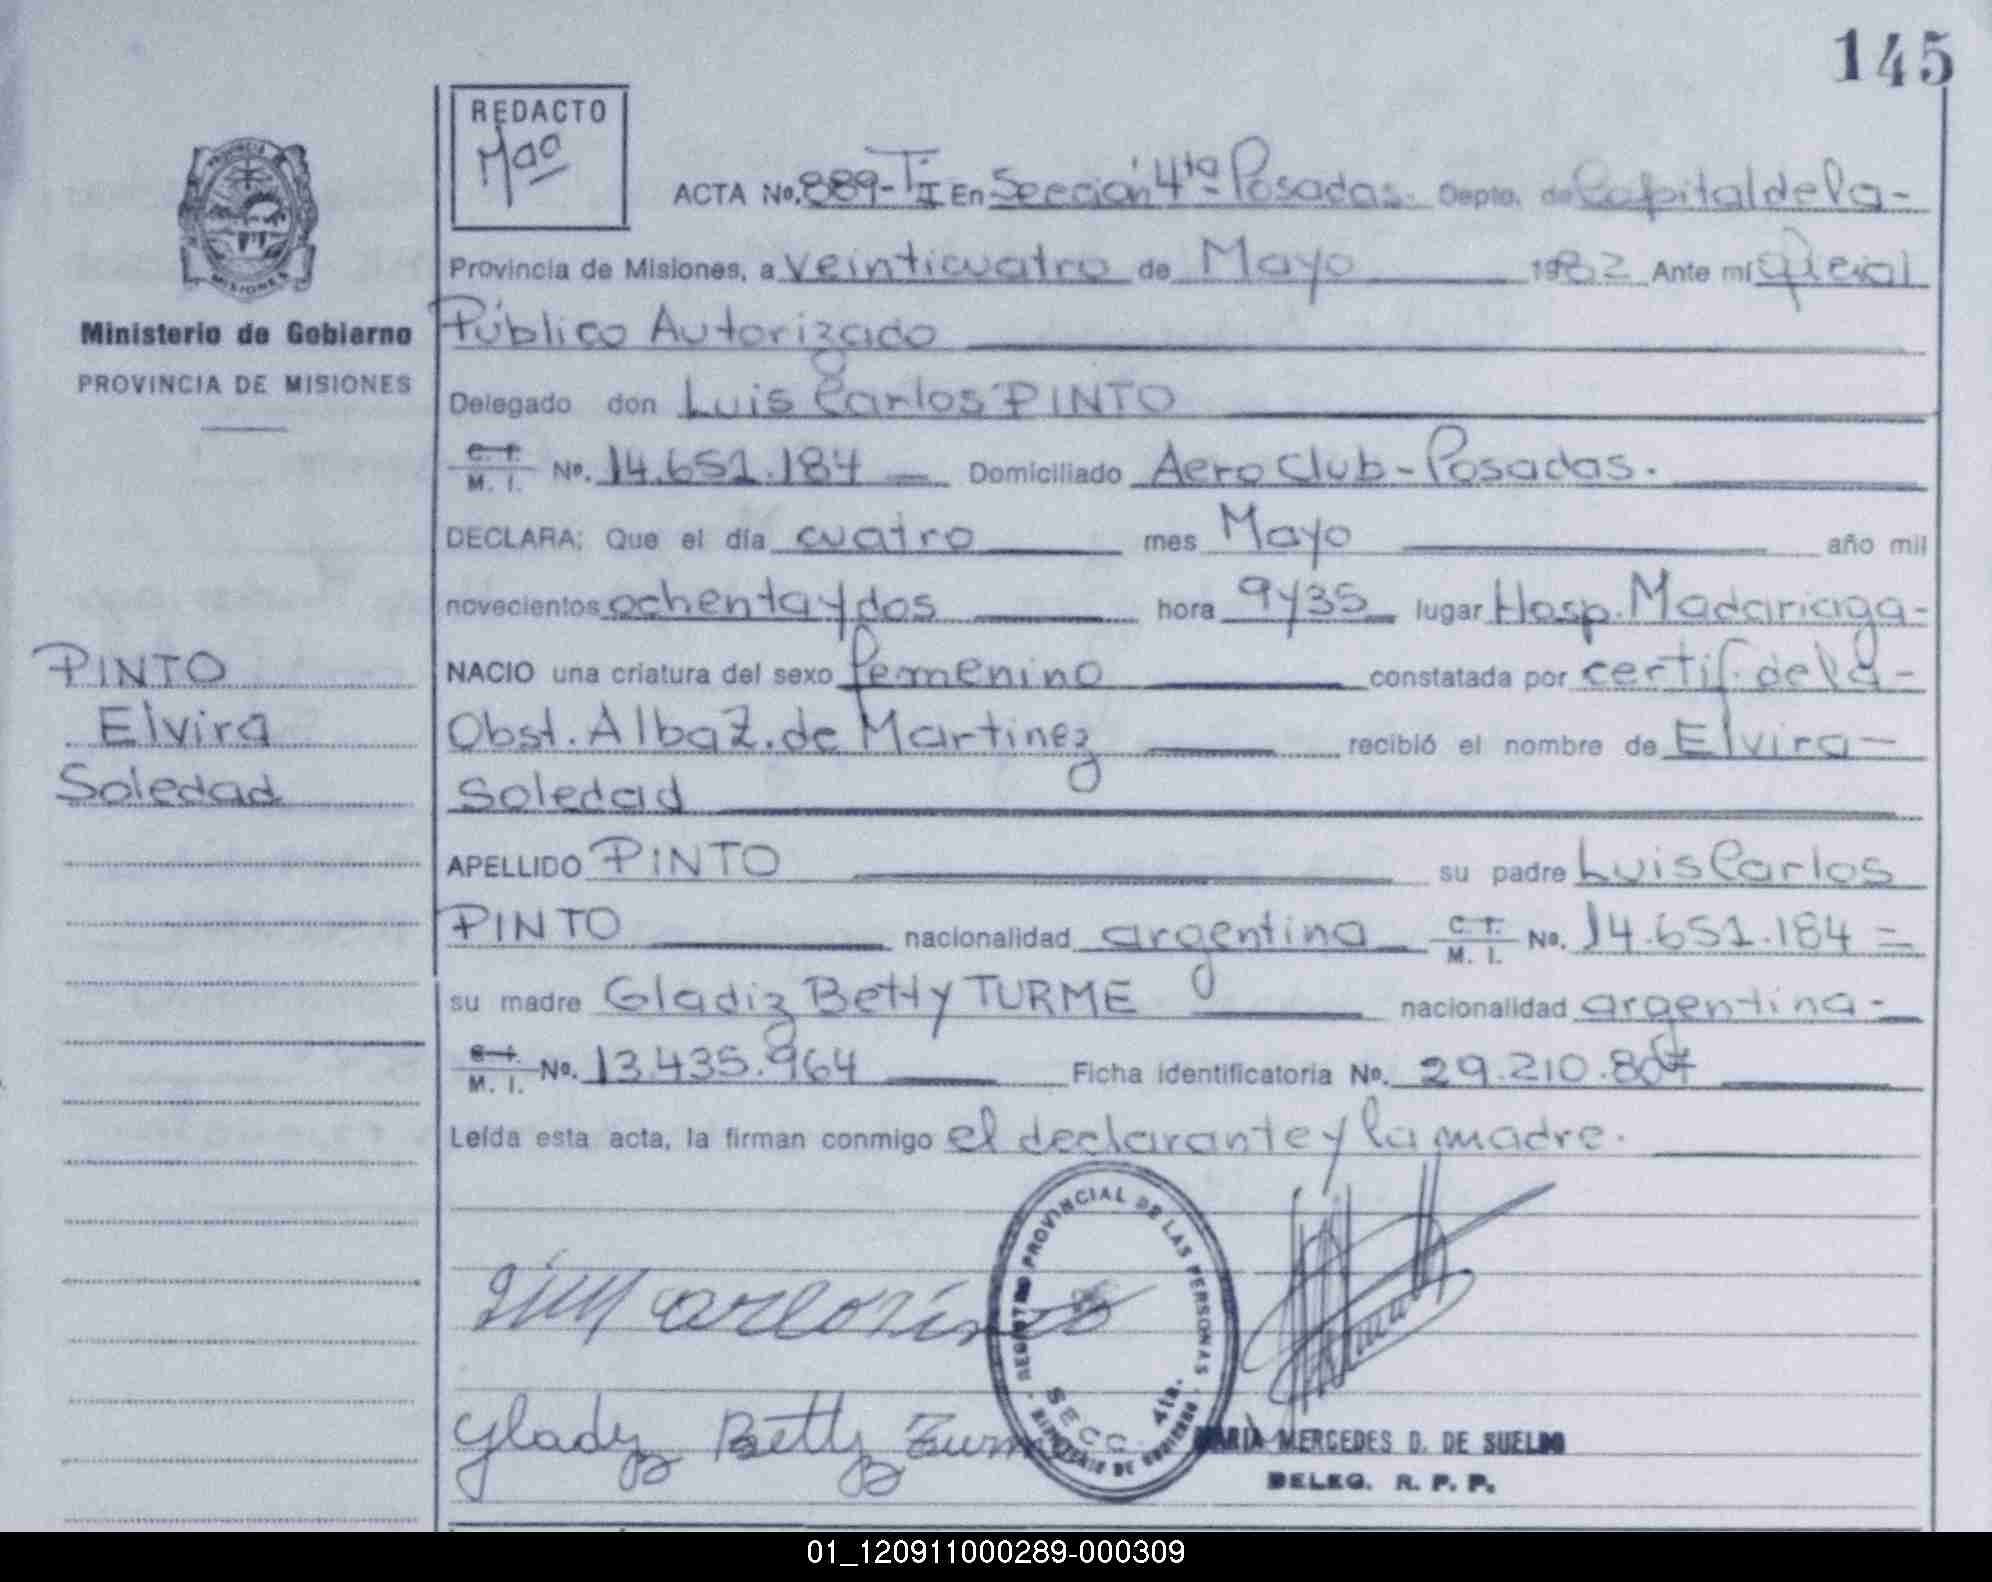 145
REDACTO
Mao
ACTA No. 889-TI En Sección 4ta Posadas. Depto. de Capital de la-
PROVINCIA
MISIONES
Provincia de Misiones, a veinticuatro de Mayo 1982 Ante mí Oficial
Ministerio de Gobierno
Público Autorizado
PROVINCIA DE MISIONES
Delegado don Luis Carlos PINTO
C. I.
M. I. No. 14.651.184 Domiciliado Aero Club - Posadas.
DECLARA: Que el día cuatro mes Mayo año mil
novecientos ochenta y dos hora 9 y 35 lugar Hosp. Madariaga-
PINTO
NACIO una criatura del sexo femenino constatada por certif. de la-
Elvira
Obst. Alba Z. de Martinez recibió el nombre de Elvira-
Soledad
Soledad
APELLIDO PINTO su padre Luis Carlos
PINTO nacionalidad argentina C. I.
M. I. No. 14.651.184 =
su madre Gladiz Betty TURME nacionalidad argentina-
C. I.
M. I. No. 13.435.964 Ficha identificatoria No. 29.210.807
Leída esta acta, la firman conmigo el declarante y la madre.
REGISTRO PROVINCIAL DE LAS PERSONAS
SECC. 4ta.
MINISTERIO DE GOBIERNO
Glady Betty Turm
MARIA MERCEDES D. DE SUELDO
DELEG. R. P. P.
01_120911000289-000309